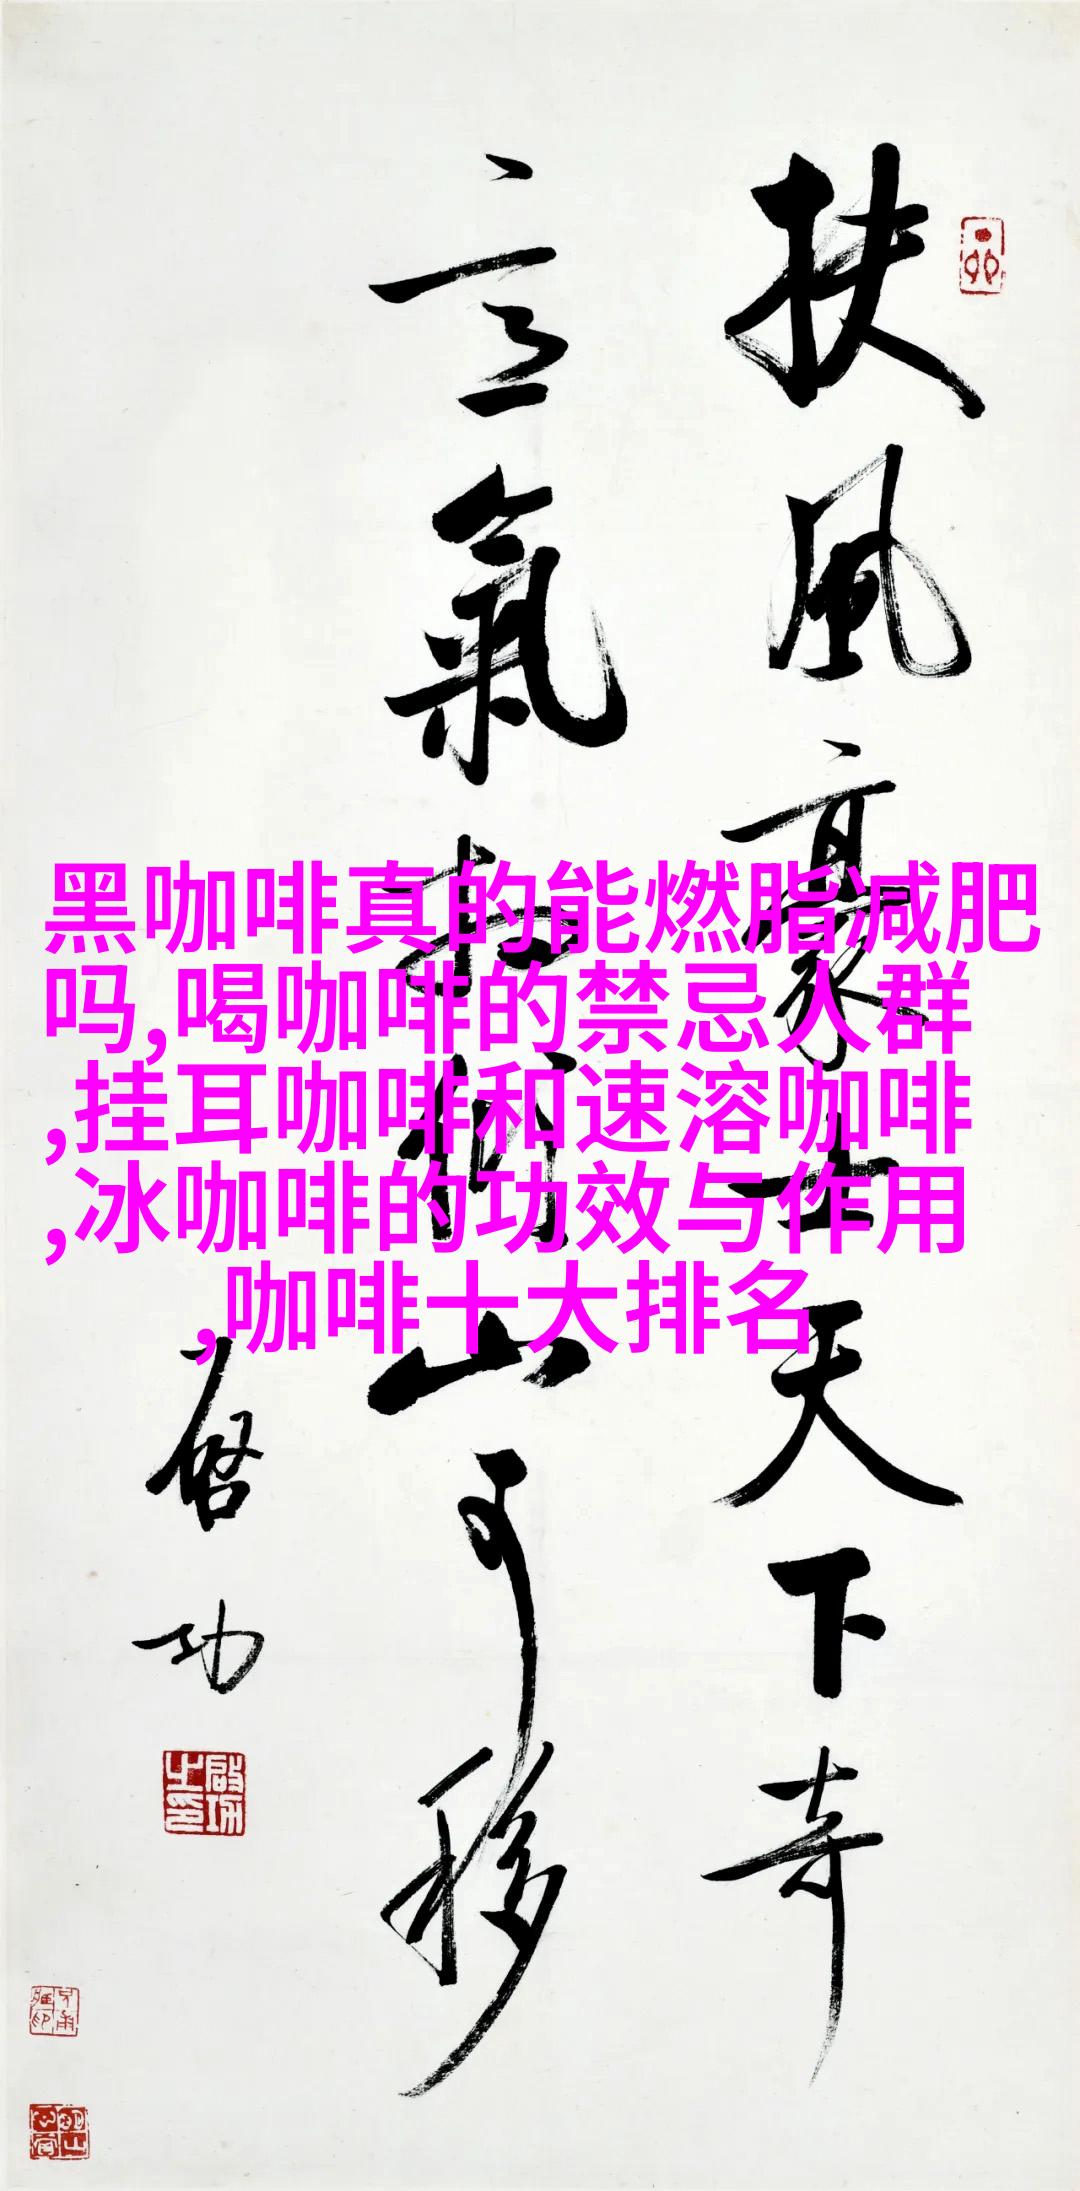 扶風豪士天下奇
意氣相傾山可移
啓功
啟功之印
黑咖啡真的能燃脂减肥
吗,喝咖啡的禁忌人群
,挂耳咖啡和速溶咖啡
,冰咖啡的功效与作用
,咖啡十大排名